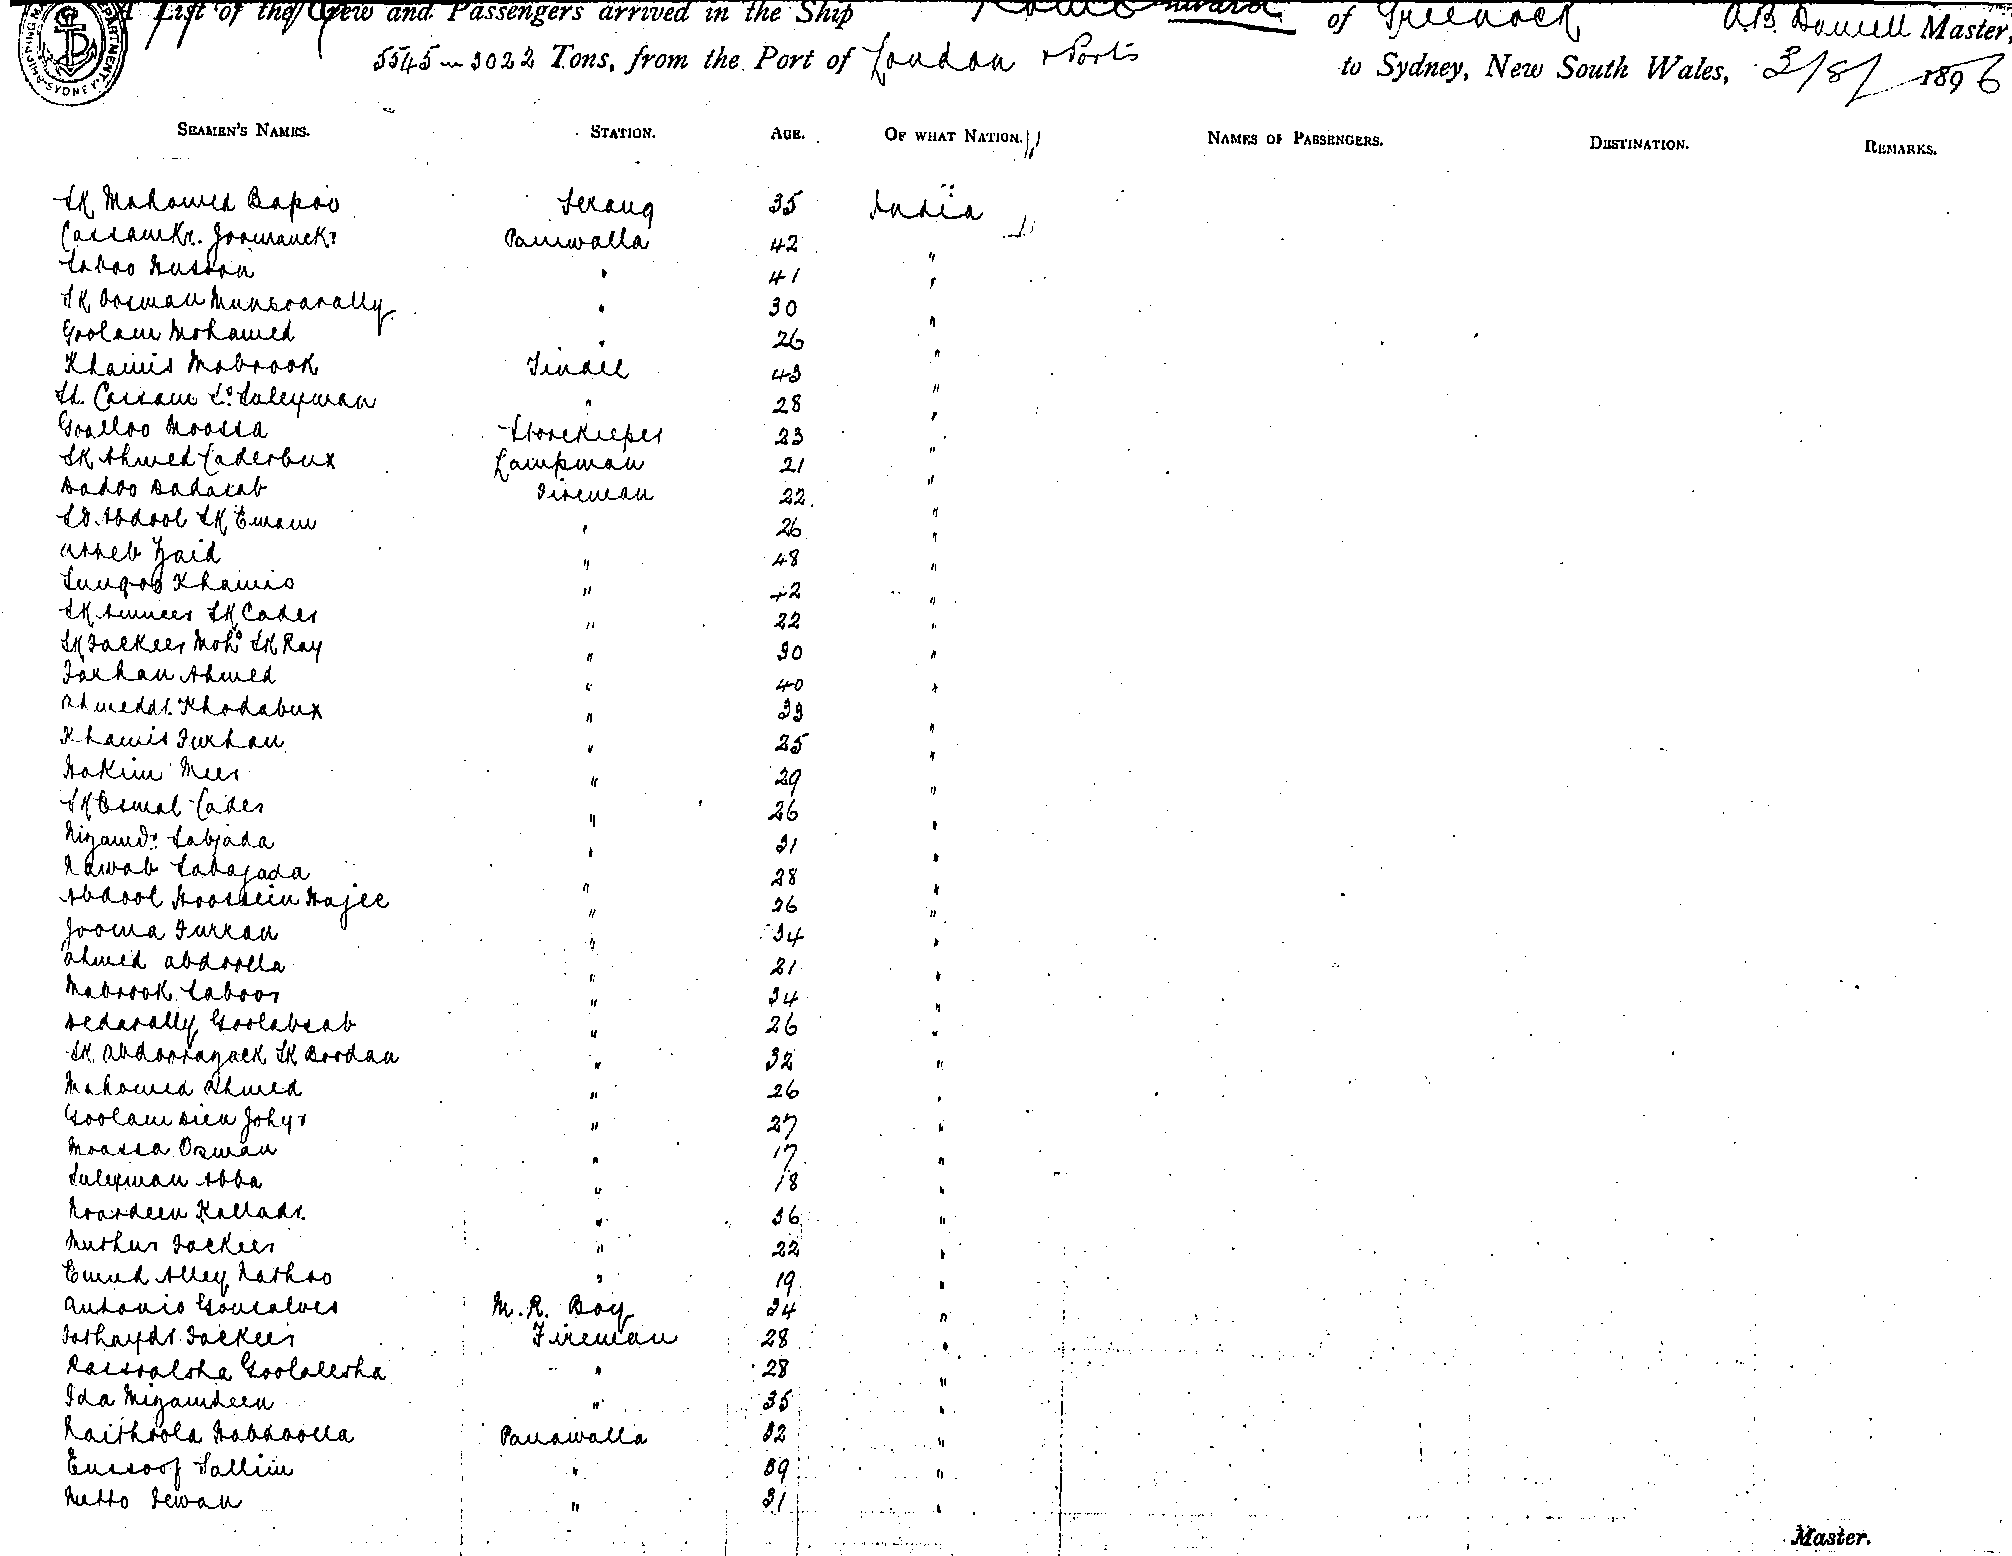 A List of the Crew and Passengers arrived in the Ship of Greenock Master,
5545 3022 Tons, from the Port of London & Ports to Sydney, New South Wales, 3/8/ 1896
SEAMEN'S NAMES. STATION. AGE. OF WHAT NATION. NAMES OF PASSENGERS. DESTINATION. REMARKS.
SK Mahomed Bapoo Serang 35 India
Paniwalla 42 "
Saboo Hussan " 41 "
SK Oosman Munsoorally " 30 "
Goolam Mohamed " 26 "
Khamis Mabrook Tindal 43 "
Cassam Suleyman " 28 "
Moossa Storekeeper 23 "
SK Ahmed Caderbux Lampman 21 "
Dadoo Dadasab Fireman 22 "
Abdool SK Emam " 26 "
Zaid " 48 "
Sungoo Khamis " 42 "
SK Ameer SK Cader " 22 "
SK Fackeer Moh^d SK Ray " 30 "
Farhan Ahmed " 40 "
Ahmedd^r. Khodabux " 33 "
Khamis Furhan " 25 "
Hakim Meer " 29 "
SK Esmal Cader " 26 "
Nizamd^n Sabjada " 31 "
Nawab Sabajada " 28 "
Abdool Hoossein Hajee " 26 "
Jooma Furran " 34 "
Ahmed Abdoolla " 21 "
Mabrook Saboor " 34 "
Dedarally Goolabsab " 26 "
SK Abdoorazack SK Boodan " 32 "
Mahomed Ahmed " 26 "
Goolam " 27 "
Moossa Osman " 17 "
Suleyman Abba " 18 "
Noordeen " 36 "
Fackeer " 22 "
Alley Nathoo " 19 "
Antonio Gonsalves M. R. Boy 34 "
Fackeer Fireman 28 "
" 28 "
Ida Nizamdeen " 35 "
Habdoolla Panawalla 32 "
Eussoof Sallim " 39 "
Dewan " 31 "
Master.